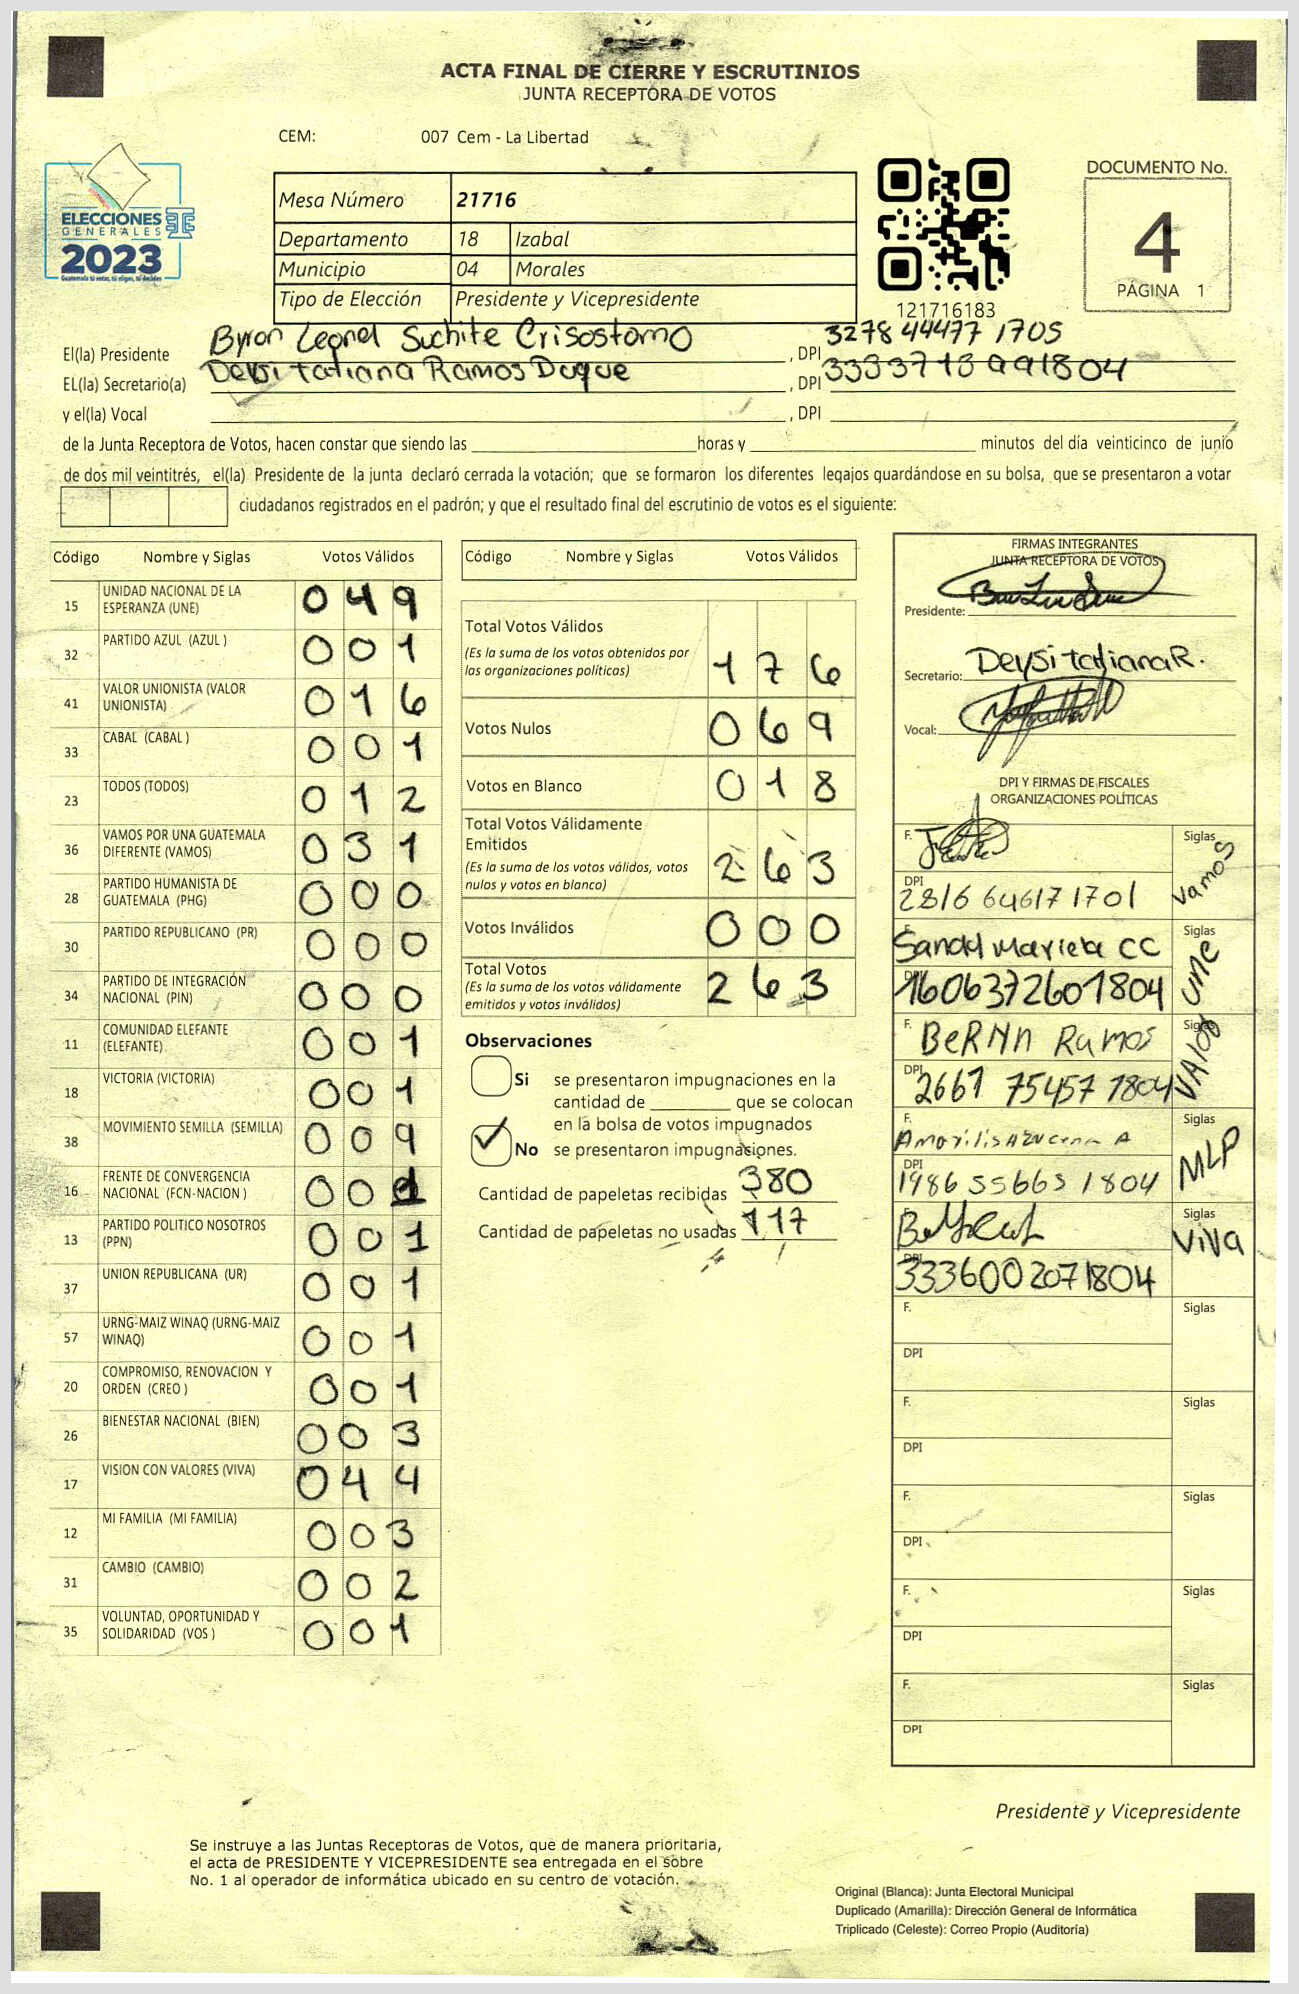 ACTA FINAL DE CIERRE Y ESCRUTINIOS
JUNTA RECEPTORA DE VOTOS
CEM: 007 Cem - La Libertad
ELECCIONES
GENERALES
2023
Guatemala tú votas, tú eliges, tú decides
Mesa Número 21716
Departamento 18 Izabal
Municipio 04 Morales
Tipo de Elección Presidente y Vicepresidente
121716183
DOCUMENTO No.
4
PÁGINA 1
El(la) Presidente Byron Leonel Suchite Crisostomo , DPI 3278 44477 1705
EL(la) Secretario(a) Deysi tatiana Ramos Duque , DPI 333371399 1804
y el(la) Vocal , DPI
de la Junta Receptora de Votos, hacen constar que siendo las horas y minutos del día veinticinco de junio
de dos mil veintitrés, el(la) Presidente de la junta declaró cerrada la votación; que se formaron los diferentes legajos guardándose en su bolsa, que se presentaron a votar
ciudadanos registrados en el padrón; y que el resultado final del escrutinio de votos es el siguiente:
Código Nombre y Siglas Votos Válidos
15 UNIDAD NACIONAL DE LA ESPERANZA (UNE) 0 4 9
32 PARTIDO AZUL (AZUL ) 0 0 1
41 VALOR UNIONISTA (VALOR UNIONISTA) 0 1 6
33 CABAL (CABAL ) 0 0 1
23 TODOS (TODOS) 0 1 2
36 VAMOS POR UNA GUATEMALA DIFERENTE (VAMOS) 0 3 1
28 PARTIDO HUMANISTA DE GUATEMALA (PHG) 0 0 0
30 PARTIDO REPUBLICANO (PR) 0 0 0
34 PARTIDO DE INTEGRACIÓN NACIONAL (PIN) 0 0 0
11 COMUNIDAD ELEFANTE (ELEFANTE) 0 0 1
18 VICTORIA (VICTORIA) 0 0 1
38 MOVIMIENTO SEMILLA (SEMILLA) 0 0 9
16 FRENTE DE CONVERGENCIA NACIONAL (FCN-NACION ) 0 0 1
13 PARTIDO POLITICO NOSOTROS (PPN) 0 0 1
37 UNION REPUBLICANA (UR) 0 0 1
57 URNG-MAIZ WINAQ (URNG-MAIZ WINAQ) 0 0 1
20 COMPROMISO, RENOVACION Y ORDEN (CREO ) 0 0 1
26 BIENESTAR NACIONAL (BIEN) 0 0 3
17 VISION CON VALORES (VIVA) 0 4 4
12 MI FAMILIA (MI FAMILIA) 0 0 3
31 CAMBIO (CAMBIO) 0 0 2
35 VOLUNTAD, OPORTUNIDAD Y SOLIDARIDAD (VOS ) 0 0 1
Código Nombre y Siglas Votos Válidos
Total Votos Válidos
(Es la suma de los votos obtenidos por las organizaciones políticas) 1 7 6
Votos Nulos 0 6 9
Votos en Blanco 0 1 8
Total Votos Válidamente Emitidos
(Es la suma de los votos válidos, votos nulos y votos en blanco) 2 6 3
Votos Inválidos 0 0 0
Total Votos
(Es la suma de los votos válidamente emitidos y votos inválidos) 2 6 3
Observaciones
Si se presentaron impugnaciones en la
cantidad de que se colocan
en la bolsa de votos impugnados
No se presentaron impugnaciones.
Cantidad de papeletas recibidas 380
Cantidad de papeletas no usadas 117
FIRMAS INTEGRANTES
JUNTA RECEPTORA DE VOTOS
Presidente:
Secretario: Deysi tatiana R.
Vocal:
DPI Y FIRMAS DE FISCALES
ORGANIZACIONES POLÍTICAS
F. Siglas vamos
DPI 2816 64617 1701
F. Mariela CC Siglas UNE
DPI 1606372601804
F. Ramos Siglas VALOR
DPI 2661 75457 1804
F. Siglas MLP
DPI 1986 55663 1804
F. Siglas VIVA
DPI 3336002071804
F. Siglas
DPI
F. Siglas
DPI
F. Siglas
DPI
F. Siglas
DPI
F. Siglas
DPI
Presidente y Vicepresidente
Se instruye a las Juntas Receptoras de Votos, que de manera prioritaria,
el acta de PRESIDENTE Y VICEPRESIDENTE sea entregada en el sobre
No. 1 al operador de informática ubicado en su centro de votación.
Original (Blanca): Junta Electoral Municipal
Duplicado (Amarilla): Dirección General de Informática
Triplicado (Celeste): Correo Propio (Auditoría)